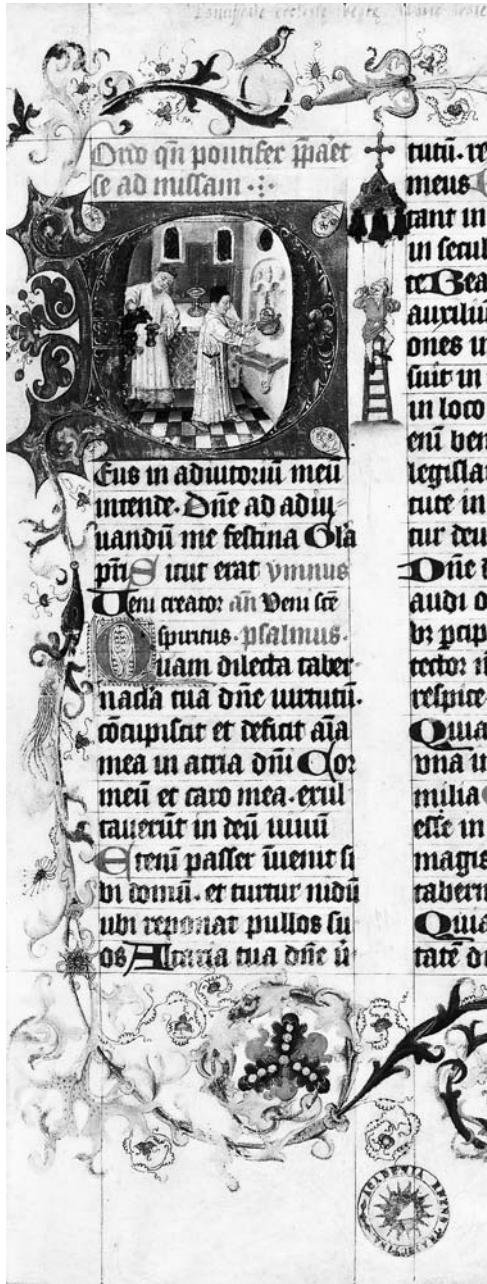 Ordo qn̄ pontifex p̄paret
se ad missam
Deus in adiutoriū meū
intende. Dn̄e ad adiu
uandū me festina Gla
pr̄i Sicut erat ymnus
Veni creator an̄ Veni sc̄e
spiritus. psalmus.
Quam dilecta taber
nacla tua dn̄e uirtutū.
cōcupiscit et deficit aīa
mea in atria dn̄i Cor
meū et caro mea. exul
tauerūt in deū uiuū
Etenī passer īuenit si
bi domū. et turtur nidū
ubi reponat pullos su
os Altaria tua dn̄e ū
tutū. re
meus
tant in
in secul
te Bea
auxiliū
ones in
suit in
in loco
enī ben
legislat
tute in
tur deu
Dn̄e
audi o
tector
respice
Quia
vna in
milia
esse in
magis
tabern
Quia
tatē di
ACADEMIA RHENO TRAIECTINA